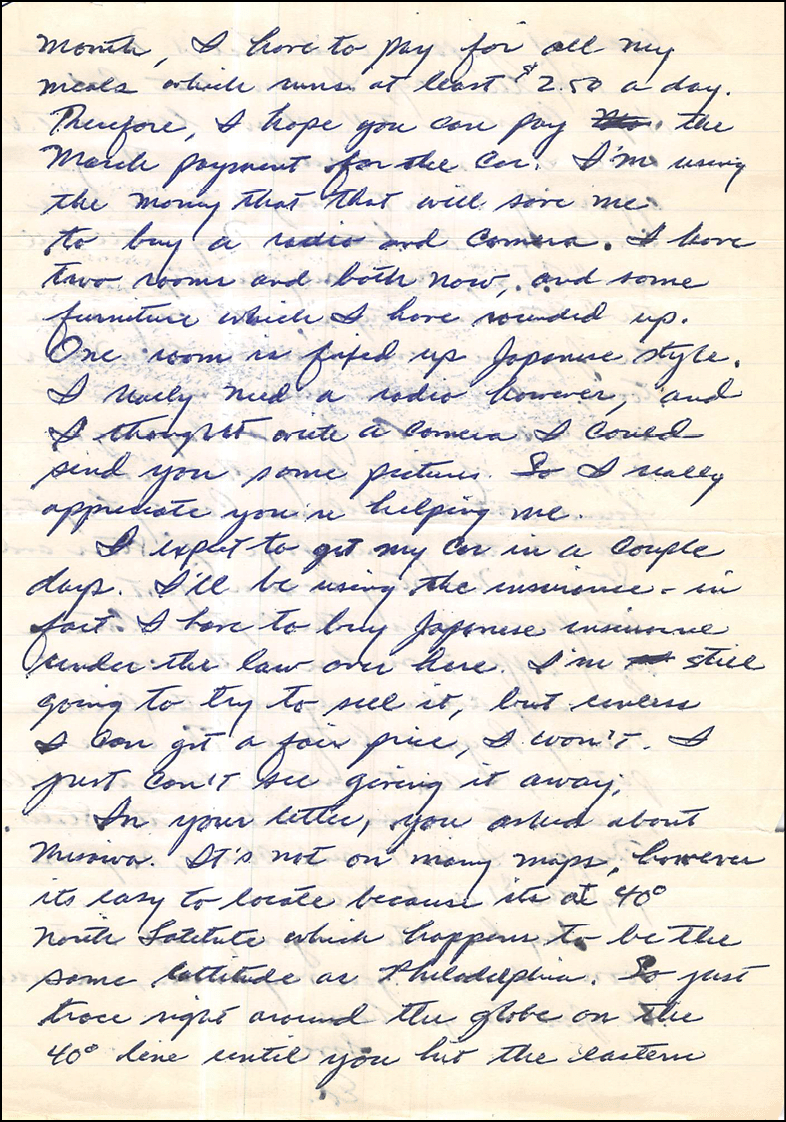 Month, I have to pay for all my
meals which runs at least $2.50 a day.
Therefore, I hope you can pay the
March payment for the car. I'm using
the money that that will save me
to buy a radio and camera. I have
two rooms and bath now, and some
furniture which I have rounded up.
One room is fixed up Japanese style.
I really need a radio however, and
I thought with a camera I could
send you some pictures. So I really
appreciate you're helping me.
I expect to get my car in a couple
days. I'll be using the insurance - in
fact I have to buy Japanese insurance
under the law over here. I'm still
going to try to sell it, but unless
I can get a fair price, I won't. I
just can't see giving it away.
In your letter, you asked about
Misawa. It's not on many maps, however
its easy to locate because its at 40°
North Latitute which happens to be the
same lattitude as Philadelphia. So just
trace right around the globe on the
40° line until you hit the eastern